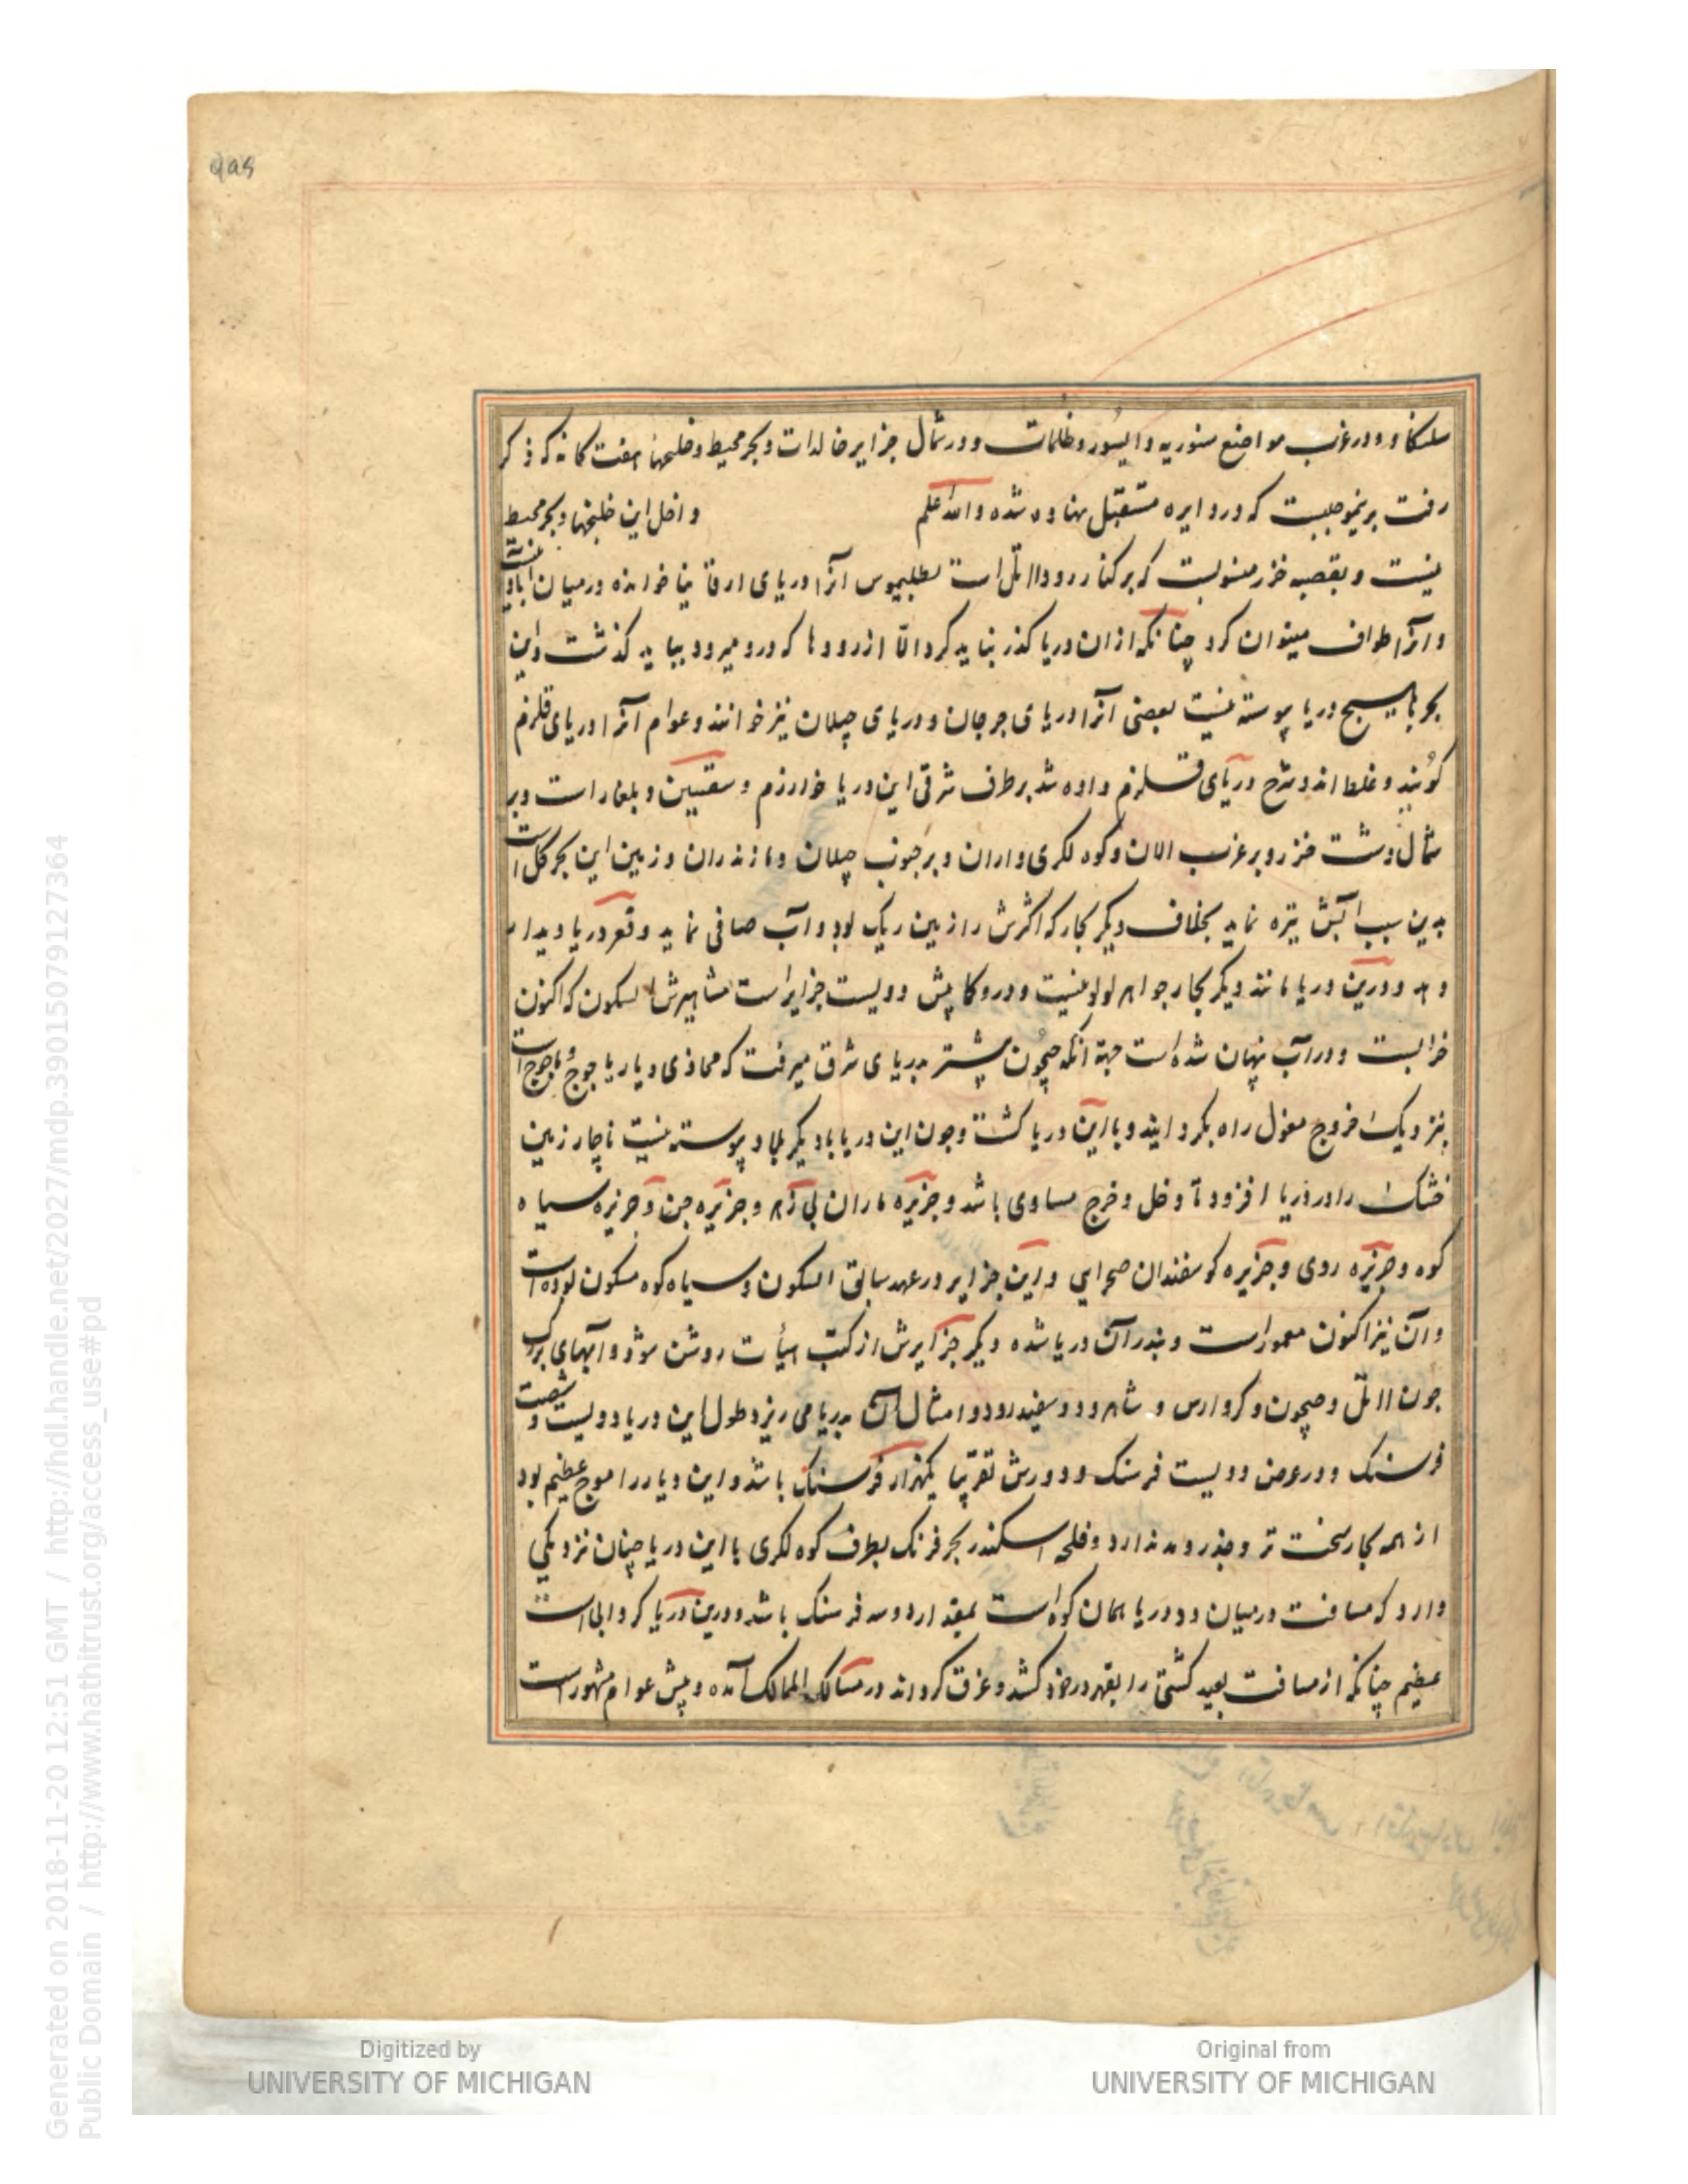 ۹۸۹
سلنکا و و در غرب مواضع سنوریه و ایسور و ظلمات و در شمال جزایر خالدات و بحر محیط و خلیجها هفت کانه که ذکر
رفت برینموجبست که در دایره مستقبل نهاده شده والله اعلم و اخل این خلیجها و بحر محیط
نیست و بقصبه خزر منسوبست که بر کنار رود اتل است بطلیموس آنرا دریای ارقانیا خوانده در میان آبادی است
و آنرا طواف میتوان کرد چنانکه از ان دریا گذر نباید کرد الا از رودها که درو میرود بباید گذشت و این
بحر با هیچ دریا پیوسته نیست بعضی آنرا دریای جرجان و دریای جیلان نیز خوانند و عوام آنرا دریای قلزم
گویند و غلط اند و شرح دریای قلزم داده شد بر طرف شرقی این دریا خوارزم و سقسین و بلغار است و بر
شمال دشت خزر و بر غرب الان و کوه لکزی و اران و بر جنوب جیلان و مازندران و زمین این بحر گل است
بدین سبب آبش تیره نماید بخلاف دیگر بحار که اکثرش را زمین ریک بود و آب صافی نماید و قعر دریا دیدار
دهد و درین دریا مانند دیگر بحار جواهر لولو نیست و درو کمابیش دویست جزایر است مشاهیرش ابسکون که اکنون
خرابست و در آب نهان شده است جهة آنکه جیحون پیشتر بدریای شرق میرفت که محاذی دیار یاجوج و ماجوج است
بنزدیک خروج مغول راه بگردانید و با این دریا گشت و چون این دریا با دیگر بحار پیوسته نیست ناچار زمین
خشک را در دریا افزود تا دخل و خرج مساوی باشد و جزیره ماران بی زهر و جزیره جن و جزیره سیاه
کوه و جزیره روی و جزیره کوسفندان صحرایی و این جزایر در عهد سابق ابسکون و سیاه کوه مسکون بوده است
و آن نیز اکنون معمور است و بندر آن دریا شده دیگر جزایرش از کتب هیأت روشن شود و آبهای بزرگ
چون اتل و جیحون و کر و ارس و شاهرود و سفیدرود و امثال آن بدریا می ریزد طول این دریا دویست و شصت
فرسنک و در عرض دویست فرسنک و دورش تقریبا یکهزار فرسنک باشد و این دیار را موج عظیم بود
از همه بحار سخت تر و جذر و مد ندارد و خلیج اسکندر بحر فرنک بطرف کوه لکزی با این دریا چنان نزدیکی
دارد که مسافت در میان دو دریا همان کوه است بمقدار دو سه فرسنک باشد و درین دریا گردابی است
عظیم چنانکه از مسافت بعید کشتی را بقهر در خود کشد و غرق گرداند در مسالک الممالک آمده و پیش عوام مشهور است
Generated on 2018-11-20 12:51 GMT / http://hdl.handle.net/2027/mdp.39015079127364
Public Domain / http://www.hathitrust.org/access_use#pd
Digitized by
UNIVERSITY OF MICHIGAN
Original from
UNIVERSITY OF MICHIGAN